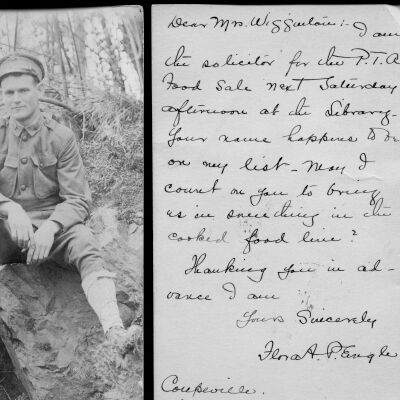 Dear Mrs. Wigginton:- I am
the solicitor for the P.T.A
Food Sale next Saturday
afternoon at the Library.
Your name happens to be
on my list - May I
count on you to bring
us in something in the
cooked food line?
Thanking you in ad-
vance I am
Yours Sincerely
Flora A. P. Engle
Coupeville.